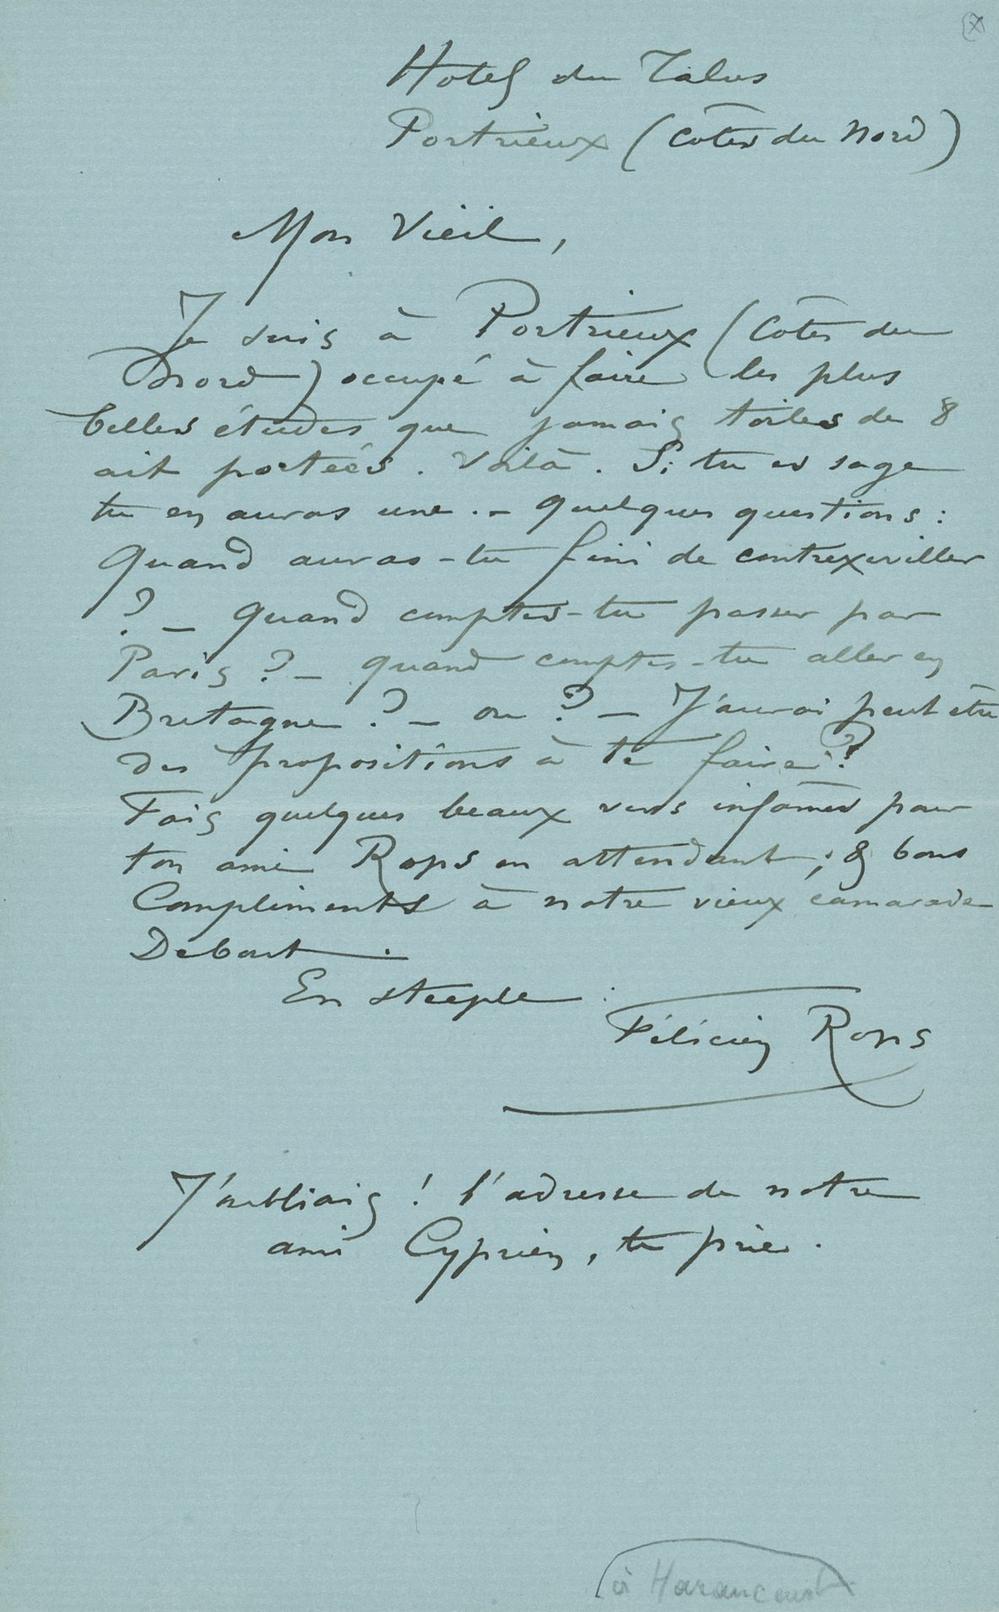 Hotel du Talus
Portrieux (Côtes du Nord)
Mon Vieil,
Je suis à Portrieux (Côtes du
Nord) occupé à faire les plus
belles études que jamais toiles de 8
ait portées. Voilà. Si tu es sage
tu en auras une. – Quelques questions :
Quand auras-tu fini de contrexeviller
? – Quand comptes-tu passer par
Paris ? – quand comptes-tu aller en
Bretagne ? – ou ? – J'aurai peut être
des propositions à te faire ?
Fais quelques beaux vers infames pour
ton ami Rops en attendant ; & bons
Compliments à notre vieux camarade
Debout.
En steeple :
Félicien Rops
J'oubliais ! l'adresse de notre
ami Cyprien, te prie.
(à Haraucourt)